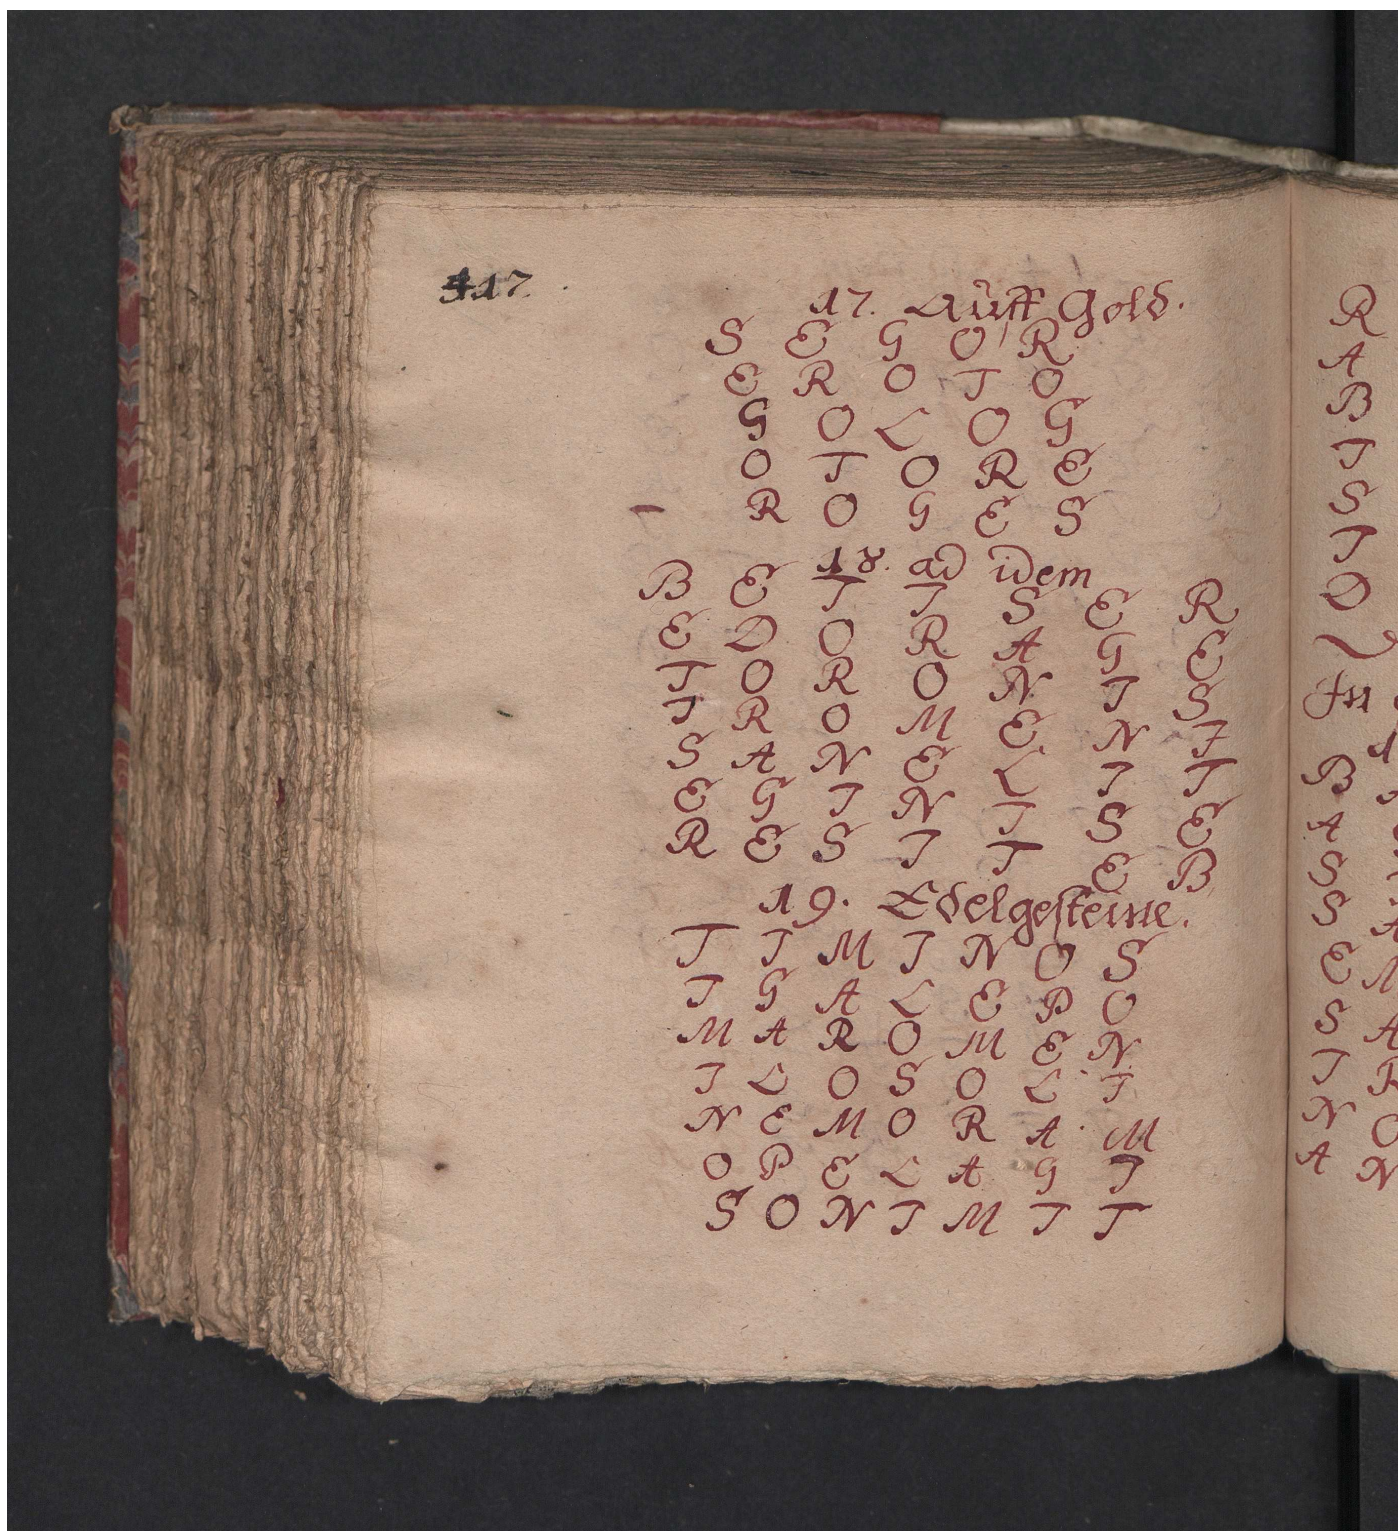 417.
17. Auff Gold.
S E G O R
E R O T O
G O L O G
O T O R E
R O G E S
18. ad idem
B E T I S E R
E D O R A G E
T O R O N I S
I R O M E N I
S A N E L I T
E G I N I S E
R E S I T E B
19. Edelgesteine.
T I M I N O S
I G A L E P O
M A R O M E N
I L O S O L I
N E M O R A M
O P E L A G I
S O N I M I T
R
A
B
I
S
I
D
In
B
A
S
S A
E M
S A
I R
N O
A N